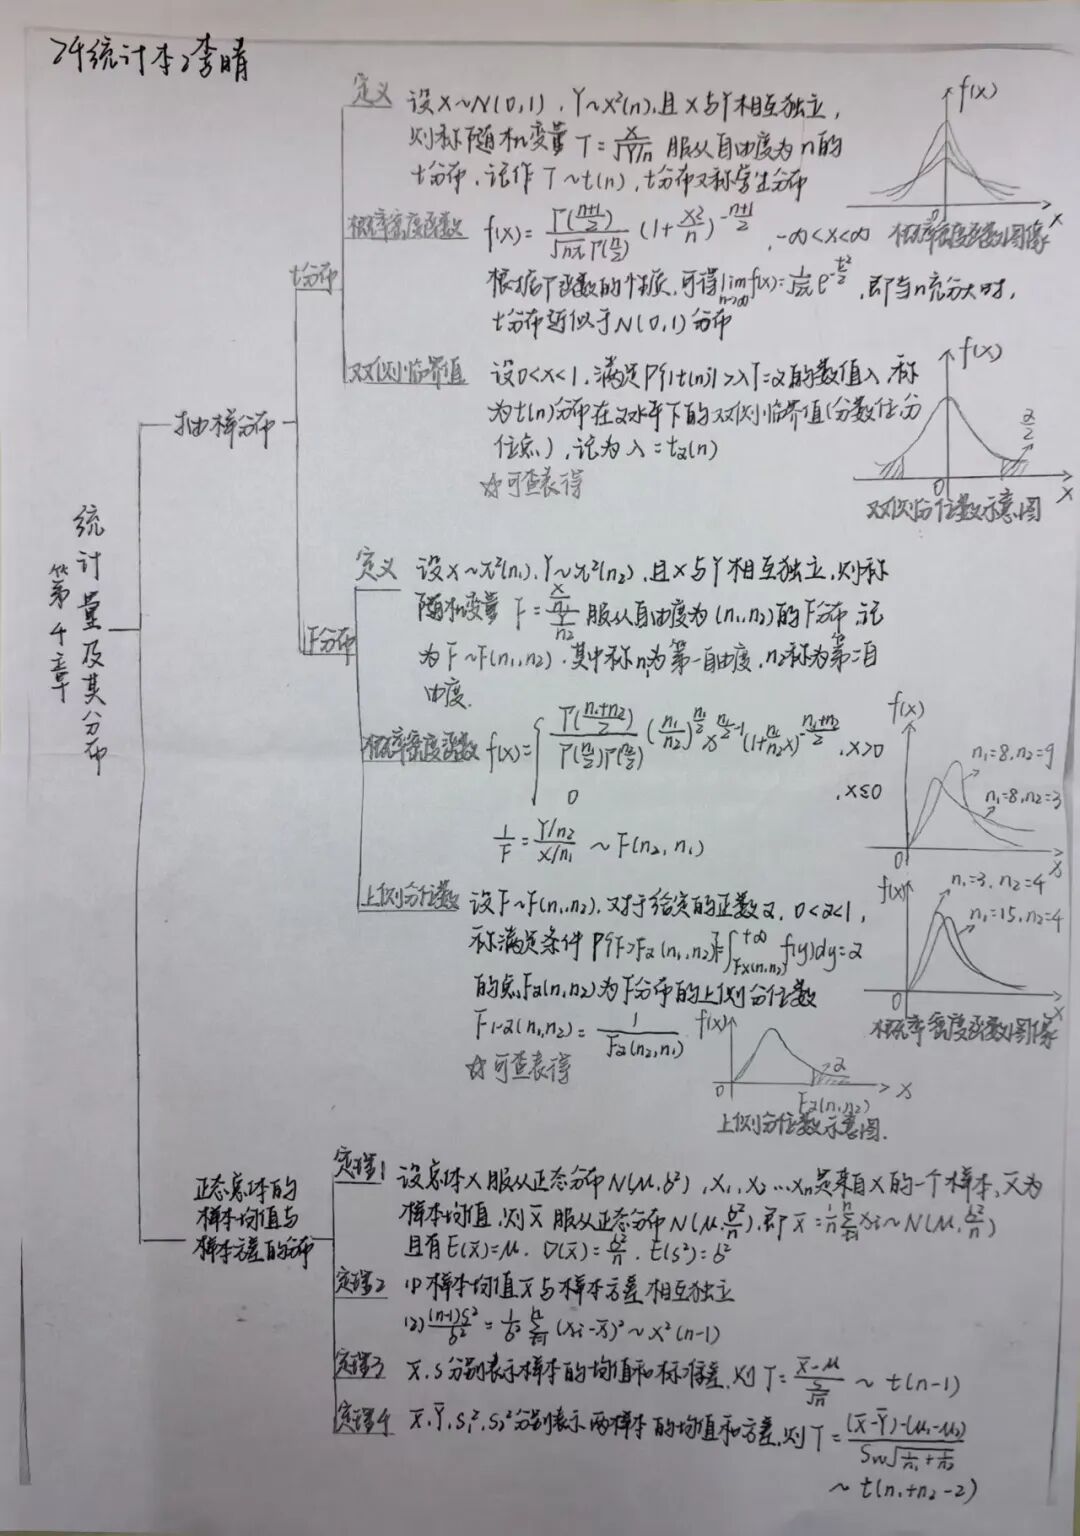 24统计本2李晴
第4章
统计量及其分布
抽样分布
t分布
定义
设X~N(0,1),Y~X²(n),且X与Y相互独立,
则称随机变量T=X/√(Y/n) 服从自由度为n的
t分布,记作T~t(n),t分布又称学生分布
概率密度函数
f(x)=Γ((n+1)/2)/(√(nπ)Γ(n/2)) (1+x²/n)^(-(n+1)/2),-∞<x<∞
根据Γ函数的性质,可得lim n→∞ f(x)=1/√(2π) e^(-t²/2),即当n充分大时,
t分布近似于N(0,1)分布
f(x)
0
x
概率密度函数图像
双侧临界值
设0<α<1,满足P{|t(n)|>λ}=α的数值λ,称
为t(n)分布在α水平下的双侧临界值(分数位分
位点),记为λ=tα(n)
☆可查表得
f(x)
α/2
0
x
双侧分位数示意图
F分布
定义
设X~X²(n₁),Y~X²(n₂),且X与Y相互独立,则称
随机变量 F=(X/n₁)/(Y/n₂) 服从自由度为(n₁,n₂)的F分布,记
为F~F(n₁,n₂),其中称n₁为第一自由度,n₂称为第二自
由度.
概率密度函数
f(x)={ Γ((n₁+n₂)/2)/(Γ(n₁/2)Γ(n₂/2)) (n₁/n₂)^(n₁/2) x^(n₁/2-1) (1+n₁/n₂ x)^(-(n₁+n₂)/2),x>0
0 ,x≤0
1/F=(Y/n₂)/(X/n₁) ~ F(n₂,n₁)
f(x)
n₁=8,n₂=9
n₁=8,n₂=3
0
x
f(x)
n₁=3,n₂=4
n₁=15,n₂=4
0
x
概率密度函数图像
上侧分位数
设F~F(n₁,n₂),对于给定的正数α,0<α<1,
称满足条件 P{F>Fα(n₁,n₂)}=∫_{Fα(n₁,n₂)}^{+∞} f(y)dy=α
的点Fα(n₁,n₂)为F分布的上侧分位数
F1-α(n₁,n₂)=1/Fα(n₂,n₁)
☆可查表得
f(x)
α
0
x
Fα(n₁,n₂)
上侧分位数示意图.
正态总体的
样本均值与
样本方差的分布
定理1
设总体X服从正态分布N(μ,σ²),X₁,X₂…Xn是来自X的一个样本,X̄为
样本均值,则X̄服从正态分布N(μ,σ²/n),即X̄=1/n Σ Xi~N(μ,σ²/n)
且有E(X̄)=μ,D(X̄)=σ²/n,E(S²)=σ²
定理2
(1)样本均值X̄与样本方差相互独立
(2)(n-1)S²/σ²=1/σ² Σ (Xi-X̄)²~X²(n-1)
定理3
X̄,S分别表示样本的均值和标准差,则T=(X̄-μ)/(S/√n) ~ t(n-1)
定理4
X̄,Ȳ,S₁²,S₂²分别表示两样本的均值和方差,则T=((X̄-Ȳ)-(μ₁-μ₂))/(Sw√(1/n₁+1/n₂))
~t(n₁+n₂-2)